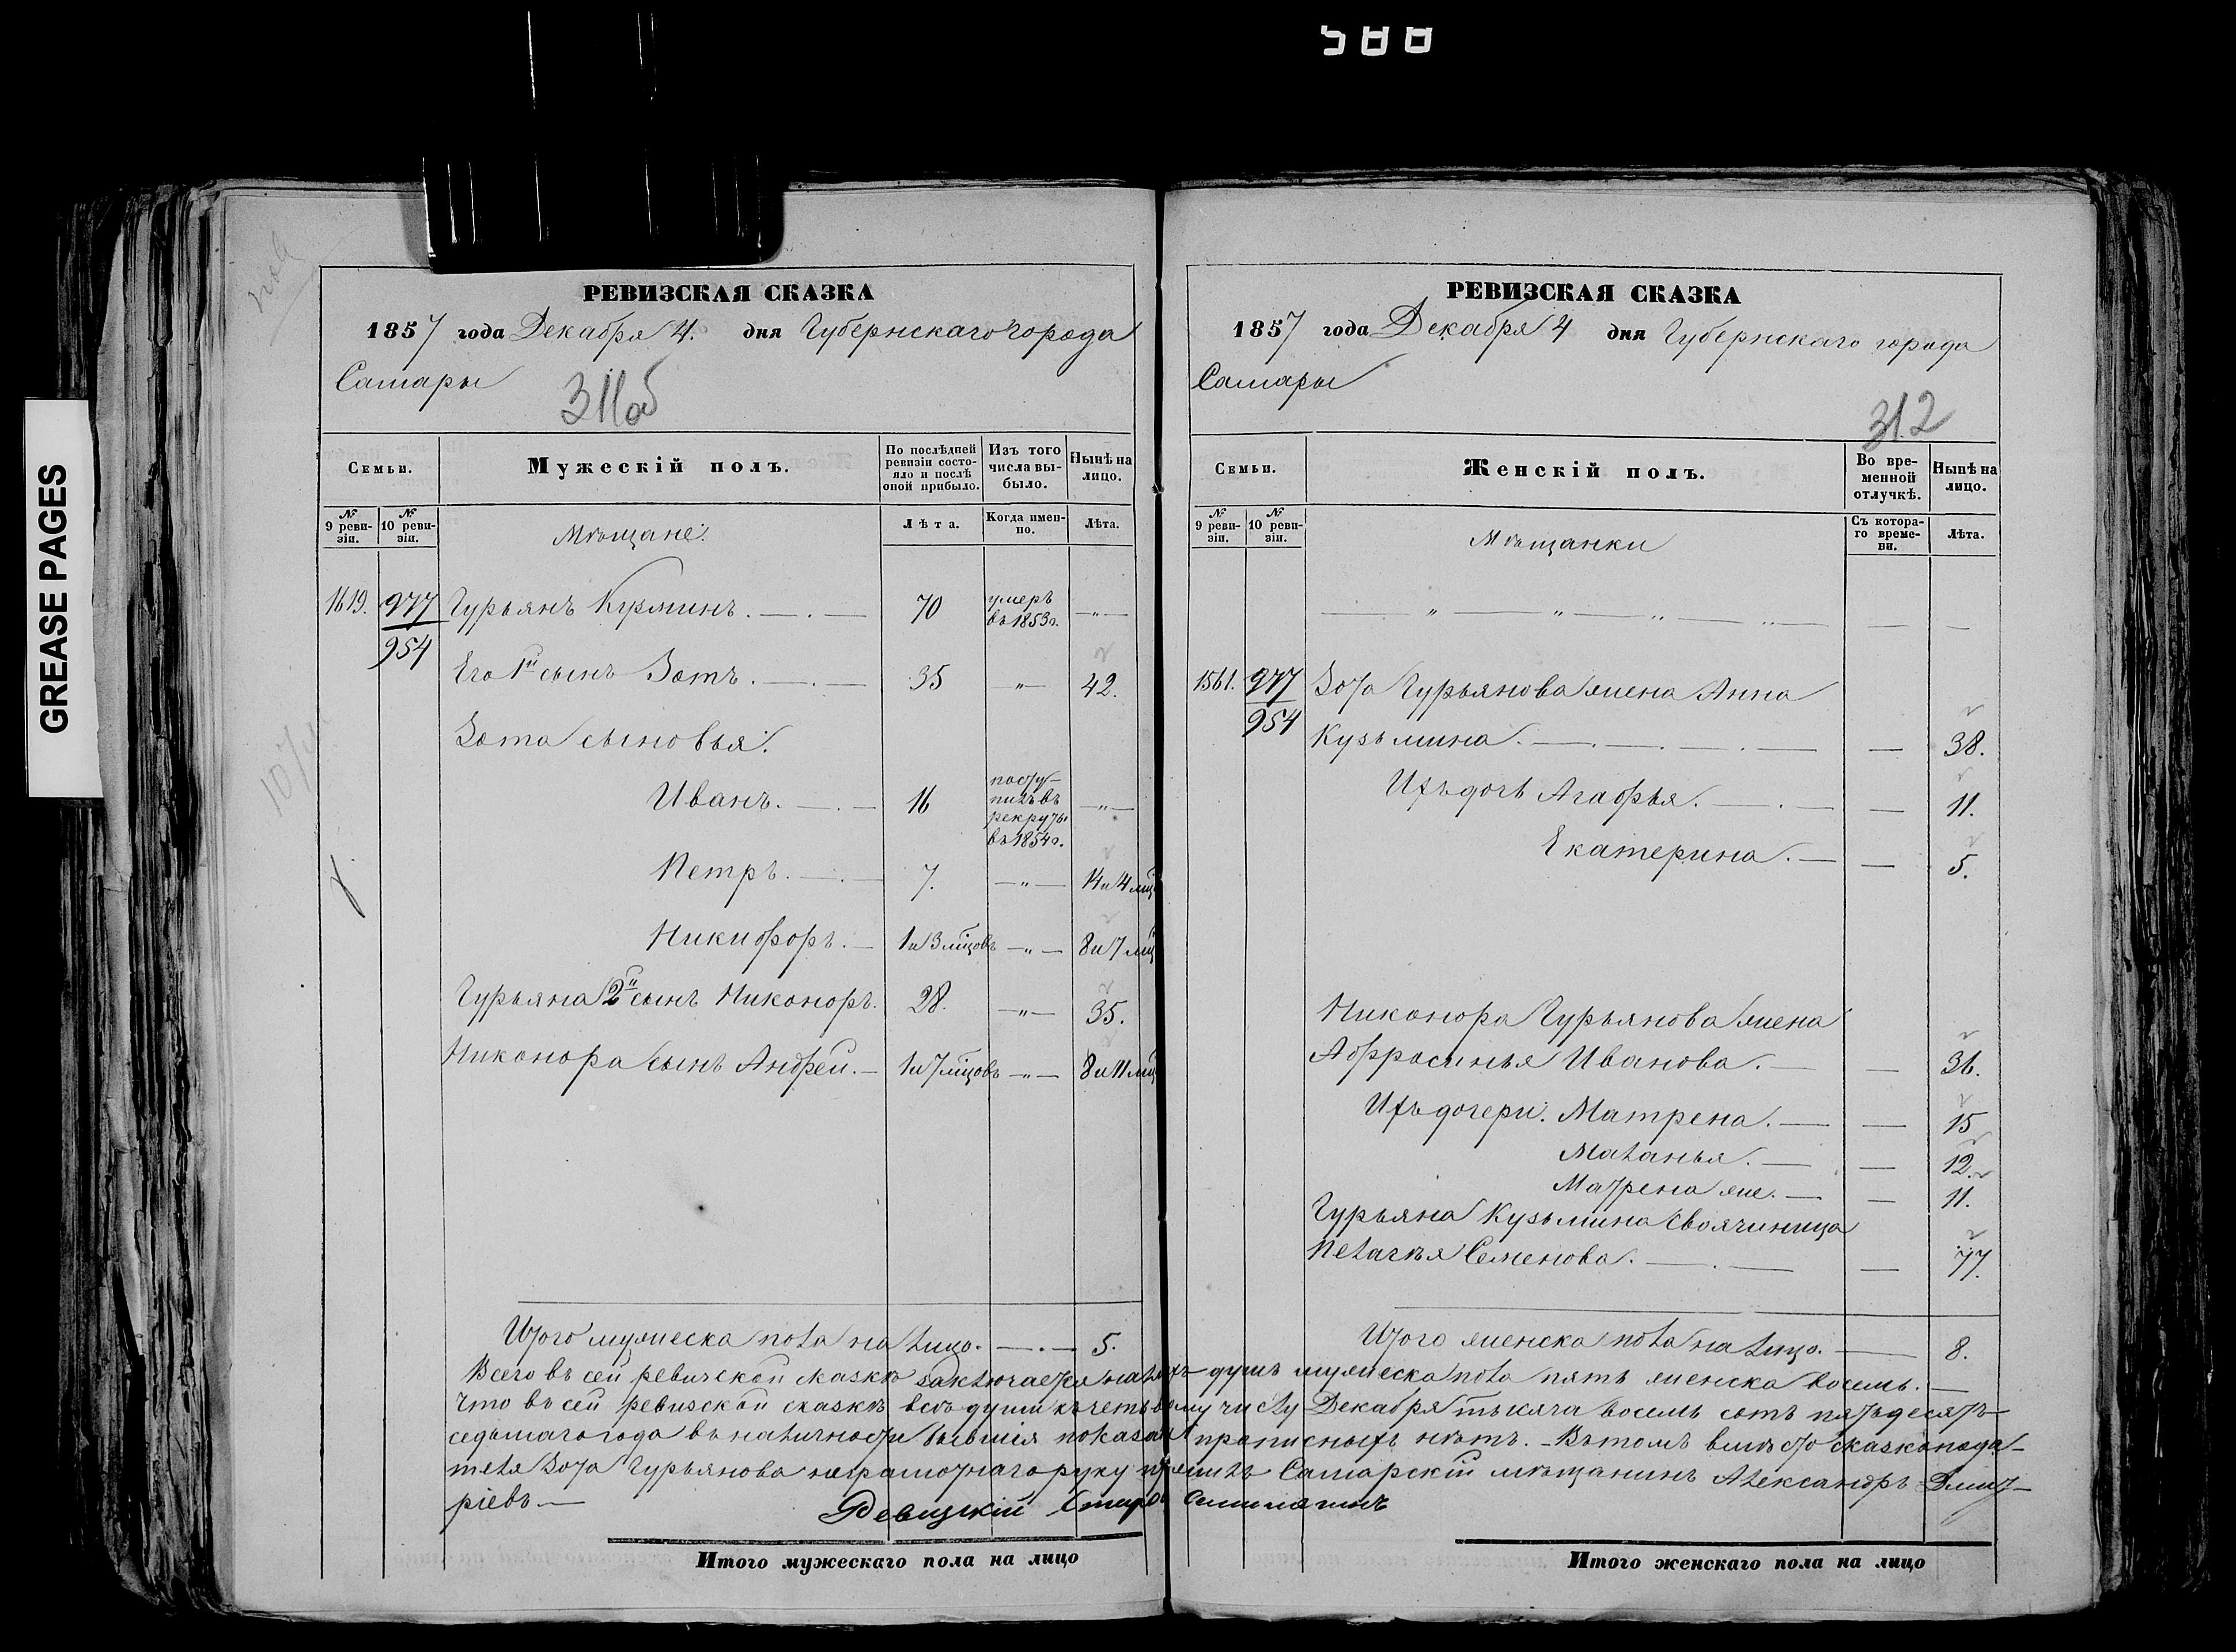 588
GREASE PAGES
РЕВИЗСКАЯ СКАЗКА
1857 года Декабря 4. дня Губернскаго города
Самары
311об
Семьи.
Мужескій полъ.
По послѣдней ревизіи состояло и послѣ оной прибыло.
Изъ того числа выбыло.
Нынѣ на лицо.
№ 9 ревизіи.
№ 10 ревизіи.
Мѣщане.
Лѣта.
Когда именно.
Лѣта.
1619. 977 Гурьянъ Кузминъ. 70 умеръ въ 1853 г. — " —
954
Его 1й сынъ Зотъ. 35 " 42.
Зота сыновья:
Иванъ. 16 поступилъ въ рекруты въ 1854 г. — " —
Петръ. 7. — " — 14 и 4 мц
Никифоръ. 1 и 3 мцовъ — " — 8 и 7 мц
Гурьяна 2й сынъ Никоноръ. 28. — " — 35.
Никонора сынъ Андрей. 1 и 7 мцовъ — " — 8 и 11 мц
РЕВИЗСКАЯ СКАЗКА
1857 года Декабря 4 дня Губернскаго города
Самары
312
Семьи.
Женскій полъ.
Во временной отлучкѣ.
Нынѣ на лицо.
№ 9 ревизіи.
№ 10 ревизіи.
Мѣщанки
Съ котораго времени.
Лѣта.
— " — " — " — " —
1561. 977 Зота Гурьянова жена Анна
954 Кузьмина. — 38.
Ихъ дочь Агафья. — 11.
Екатерина. — 5.
Никонора Гурьянова жена
Аффросинья Иванова. — 36.
Ихъ дочери: Матрена. — 15
Маланья. — 12.
Матрена же. — 11.
Гурьяна Кузьмина своячиница
Пелагѣя Семенова. — 77.
Итого мужеска пола на лицо. — 5.
Итого женска пола на лицо. — 8.
Всего въ сей ревизской сказкѣ заключается налицъ душъ мужеска пола пять женска восемь. —
Что въ сей ревизской сказкѣ всѣ души къ четвертому числу Декабря тысяча восемь сотъ пятьдесятъ
седьмаго года въ наличности бывшія показаны прописныхъ нѣтъ. - Въ томъ вмѣсто сказкопода-
теля Зота Гурьянова неграмотнаго руку приложилъ Самарскій мѣщанинъ Александръ Дмит-
ріевъ —
Ревизскій Староста
Итого мужескаго пола на лицо
Итого женскаго пола на лицо